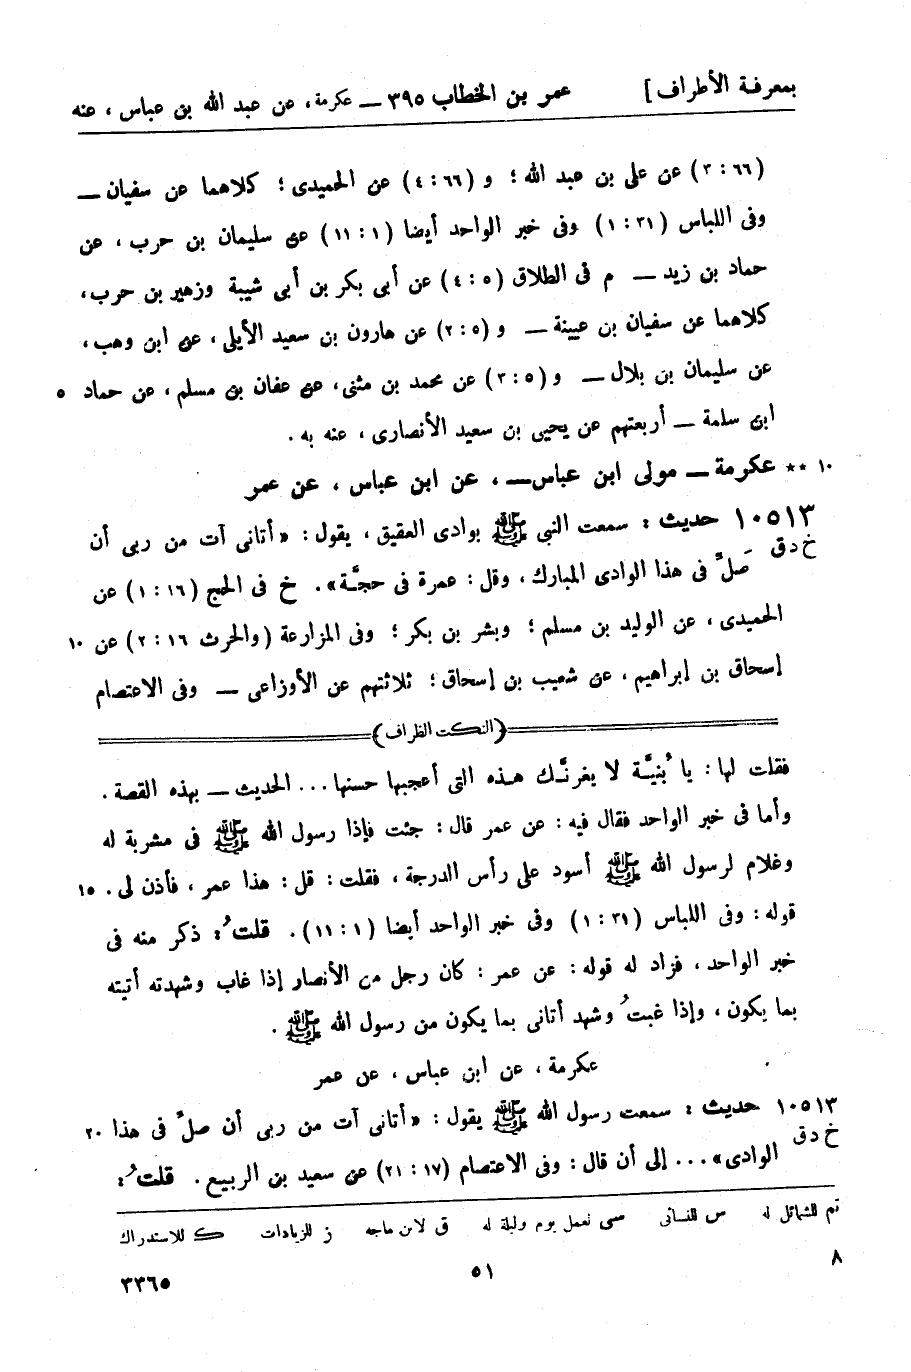 بمعرفة الأطراف] عمر بن الخطاب ٣٩٥ — عكرمة، عن عبد الله بن عباس، عنه
(٣:٦٦) عن علي بن عبد الله؛ و (٤:٦٦) عن الحميدى؛ كلاهما عن سفيان —
وفى اللباس (١:٣١) وفى خبر الواحد أيضا (١١:١) عن سليمان بن حرب، عن
حماد بن زيد — م فى الطلاق (٤:٥) عن أبى بكر بن أبى شيبة وزهير بن حرب،
كلاهما عن سفيان بن عيينة — و (٢:٥) عن هارون بن سعيد الأيلى، عن ابن وهب،
عن سليمان بن بلال — و (٣:٥) عن محمد بن مثنى، عن عفان بن مسلم، عن حماد ٥
ابن سلمة — أربعتهم عن يحيى بن سعيد الأنصارى، عنه به.
١٠ ** عكرمة — مولى ابن عباس —، عن ابن عباس، عن عمر
١٠٥١٣ حديث: سمعت النبى ﷺ بوادى العقيق، يقول: «أتانى آت من ربى أن
خ د ق صَلِّ فى هذا الوادى المبارك، وقل: عمرة فى حجَّة». خ فى الحج (١:١٦) عن
الحميدى، عن الوليد بن مسلم؛ وبشر بن بكر؛ وفى المزارعة (والحرث ٢:١٦) عن ١٠
إسحاق بن إبراهيم، عن شعيب بن إسحاق؛ ثلاثتهم عن الأوزاعى — وفى الاعتصام
(النكت الظراف)
فقلت لها: يا بُنيَّة لا يغرنَّك هذه التى أعجبها حسنها... الحديث — بهذه القصة.
وأما فى خبر الواحد فقال فيه: عن عمر قال: جئت فإذا رسول الله ﷺ فى مشربة له
وغلام لرسول الله ﷺ أسود على رأس الدرجة، فقلت: قل: هذا عمر، فأذن لى. ١٥
قوله: وفى اللباس (١:٣١) وفى خبر الواحد أيضا (١١:١). قلتُ: ذكر منه فى
خبر الواحد، فزاد له قوله: عن عمر: كان رجل من الأنصار إذا غاب وشهدته أتيته
بما يكون، وإذا غبتُ وشهد أتانى بما يكون من رسول الله ﷺ.
عكرمة، عن ابن عباس، عن عمر
١٠٥١٣ حديث: سمعت رسول الله ﷺ يقول: «أتانى آت من ربى أن صلِّ فى هذا ٢٠
خ د ق الوادى»... إلى أن قال: وفى الاعتصام (٢١:١٧) عن سعيد بن الربيع. قلتُ:
تم للشمائل له س للنسائى سى لعمل يوم وليلة له ق لابن ماجه ز للزيادات ك للاستدراك
٨ ٥١ ٣٣٦٥